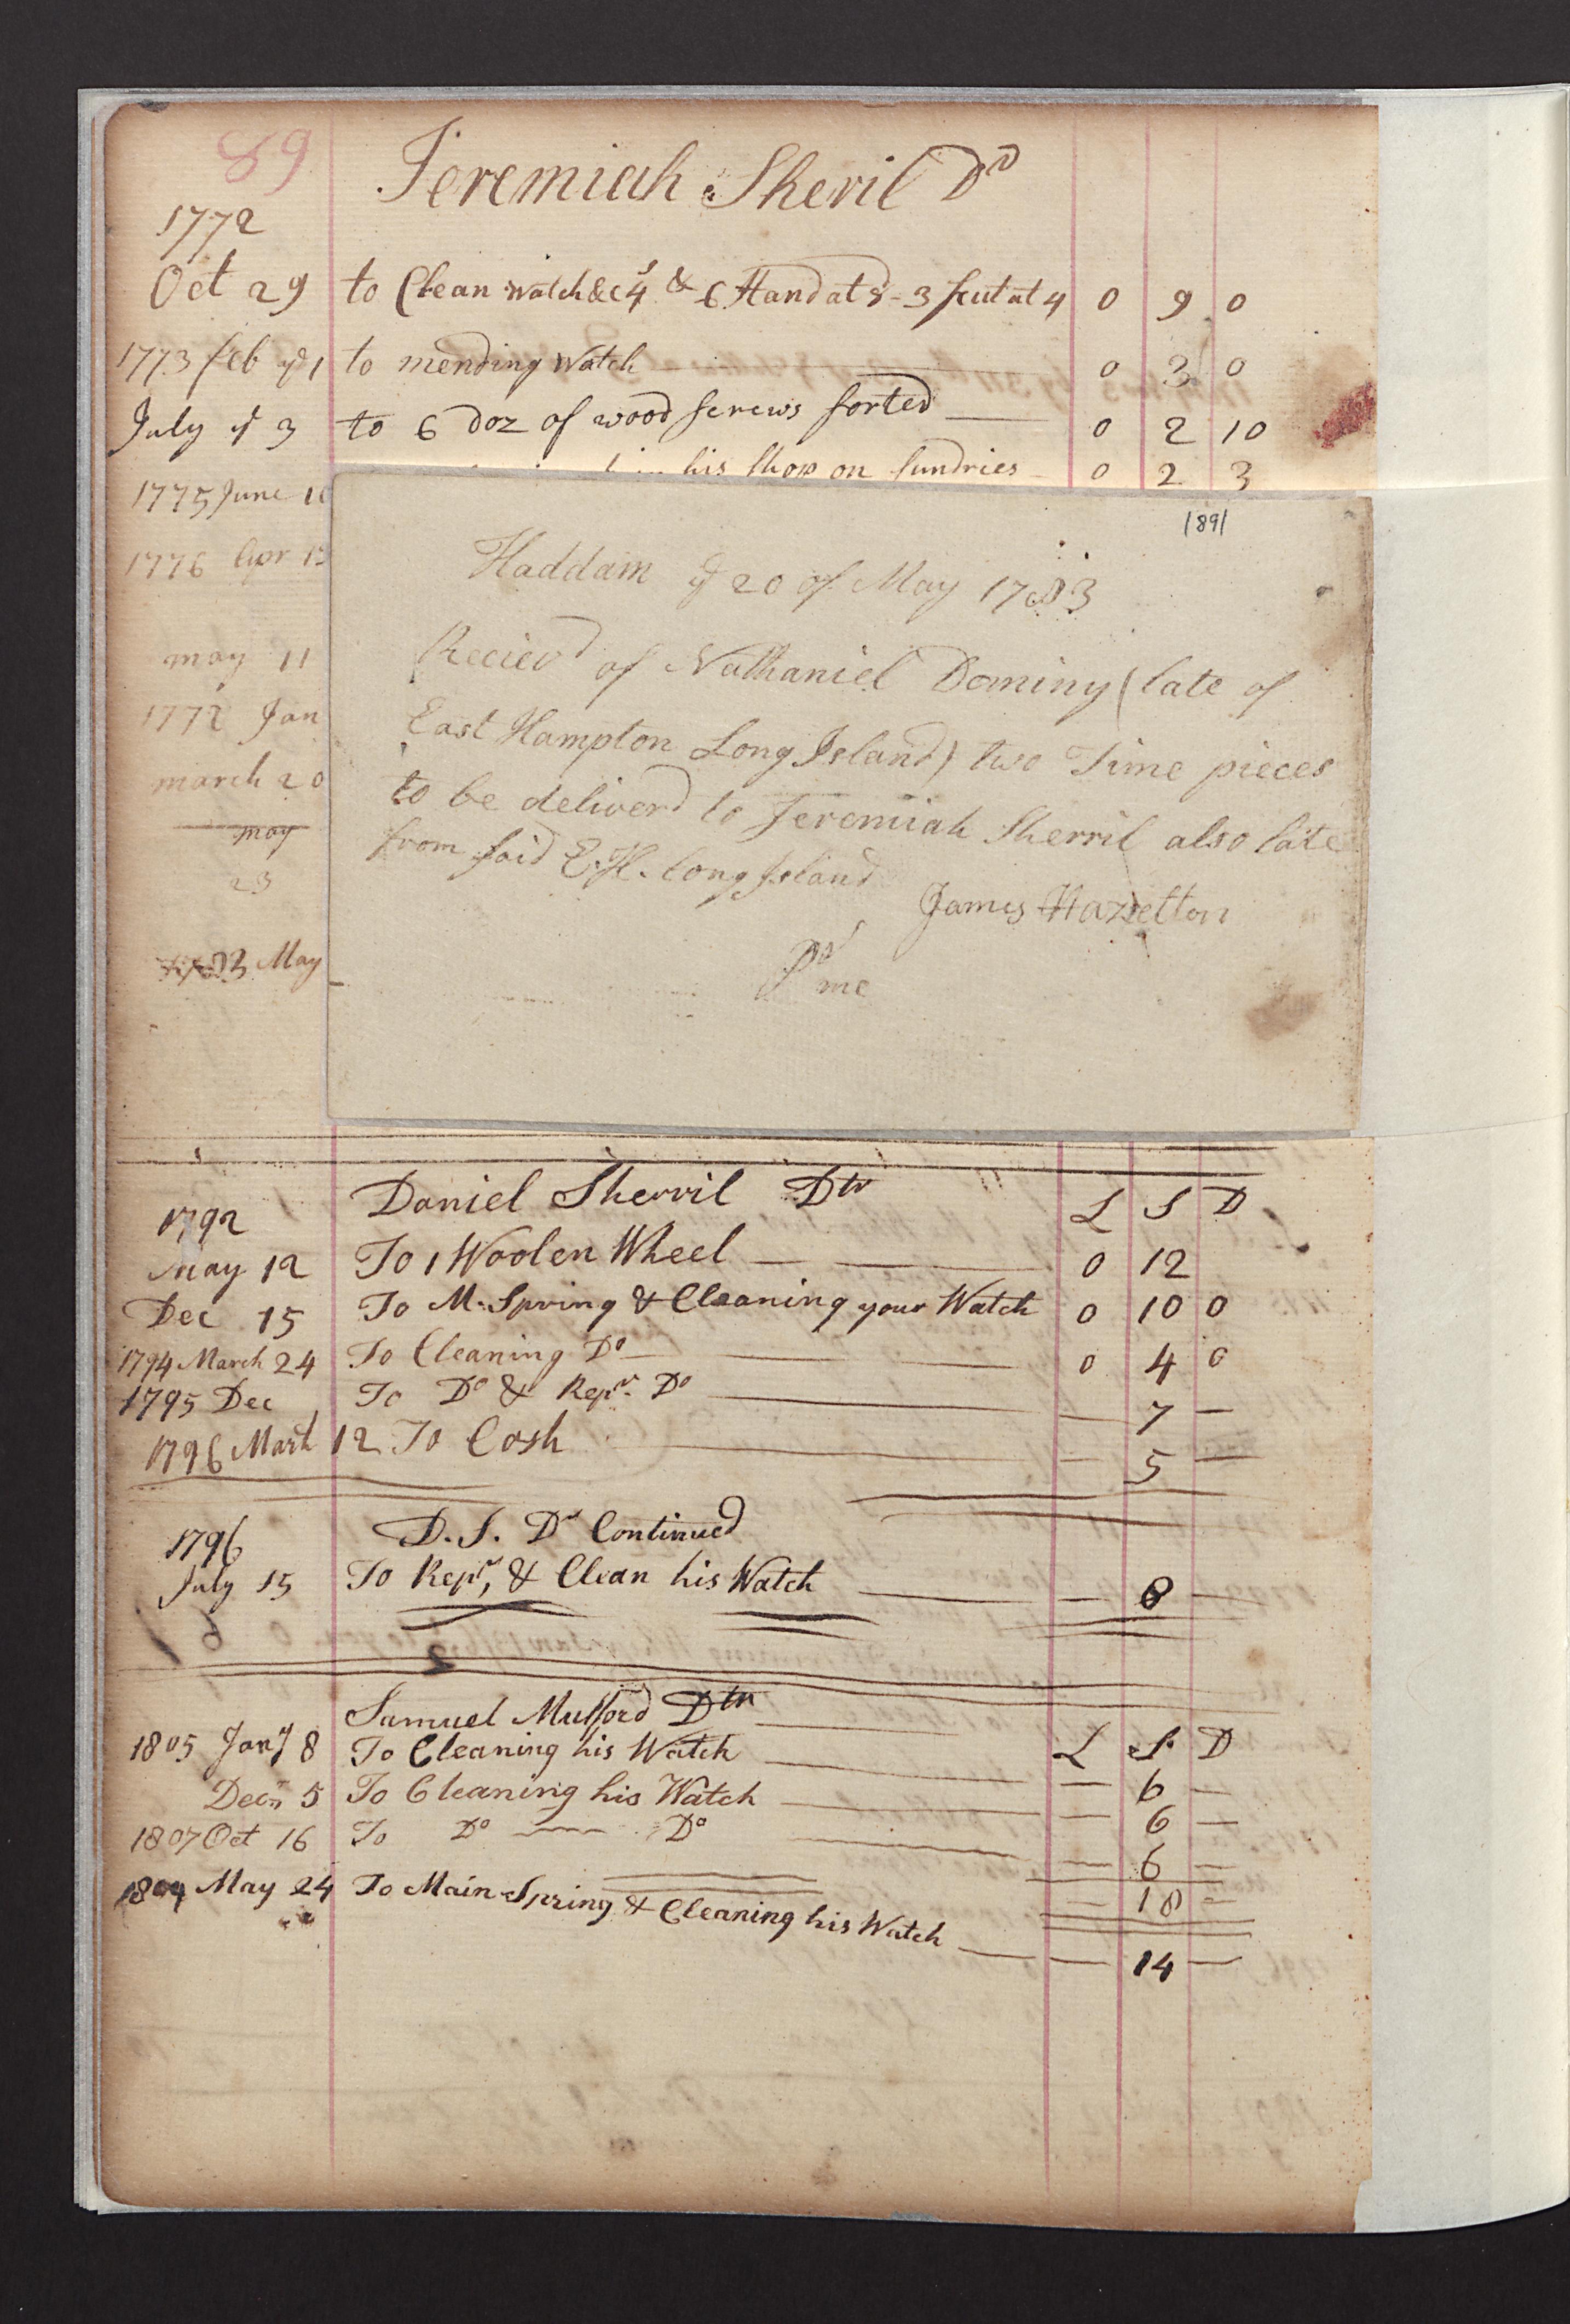 89
Jeremiah Sheril Dr
1772
Oct 29 to Clean watch &c 4s & 6 Hand at 8 - 3 at 4 0 9 0
1773 feb ye 1 to mending Watch 0 3 0
July ye 3 to 6 doz of wood screws sorted 0 2 10
his shop on sundries 0 2 3
1775 June
1776 Apr
may 11
1772 Jan
march 20
may
23
1783 May
1891
Haddam ye 20 of May 1783
Recievd of Nathaniel Dominy (late of
East Hampton Long Island) two Time pieces
to be deliverd to Jeremiah Sherril also late
from said E.H. Long Island
James Hazelton
Pr me
Daniel Sherril Dtr L S D
1792
May 12 To 1 Woolen Wheel 0 12
Dec 15 To M. Spring & Cleaning your Watch 0 10 0
1794 March 24 To Cleaning Do 0 4 0
1795 Dec To Do & Repr Do — 7 —
1796 March 12 To Cash — 5 —
D. S. Dr Continued
1796
July 15 To Repr, & Clean his Watch — 8 —
Samuel Mulford Dtr L S D
1805 Jany 8 To Cleaning his Watch — 6 —
Decr 5 To Cleaning his Watch — 6 —
1807 Oct 16 To Do Do — 6 —
— 18 —
1809 May 24 To Main Spring & Cleaning his Watch — 14 —